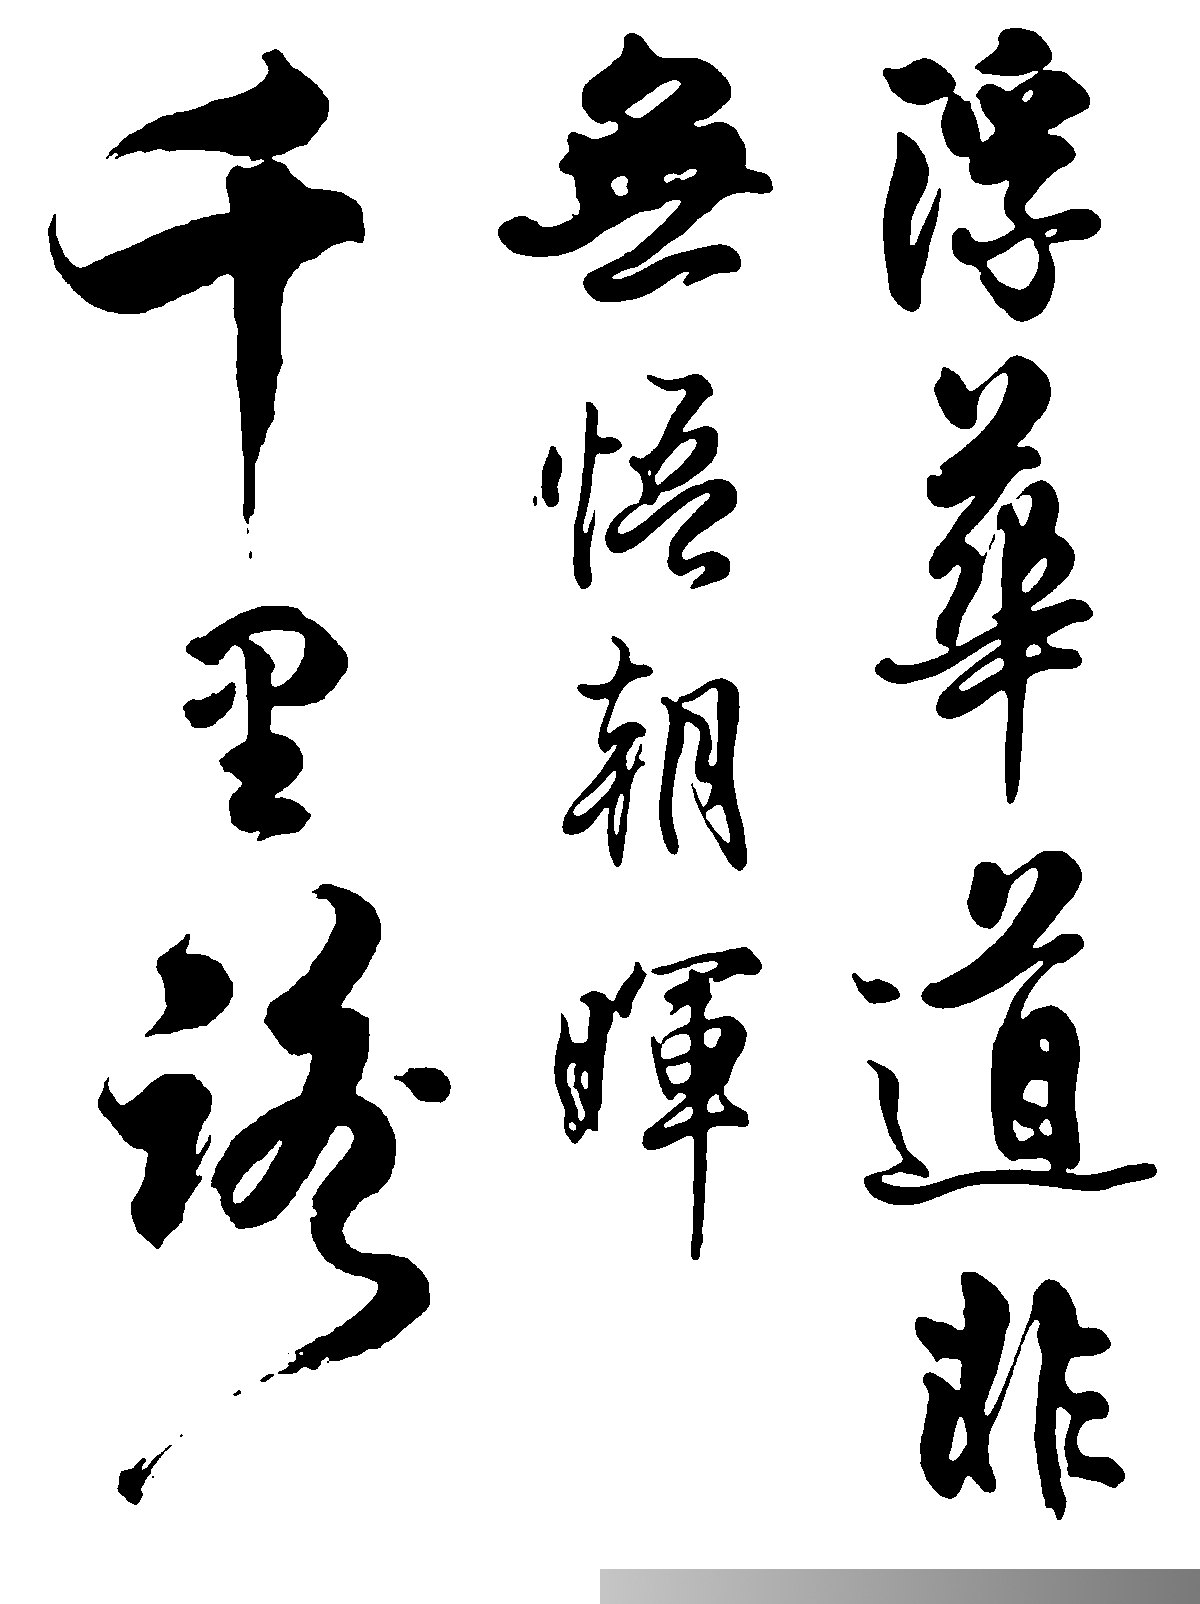 浮華道非
無悟朝暉
千里路